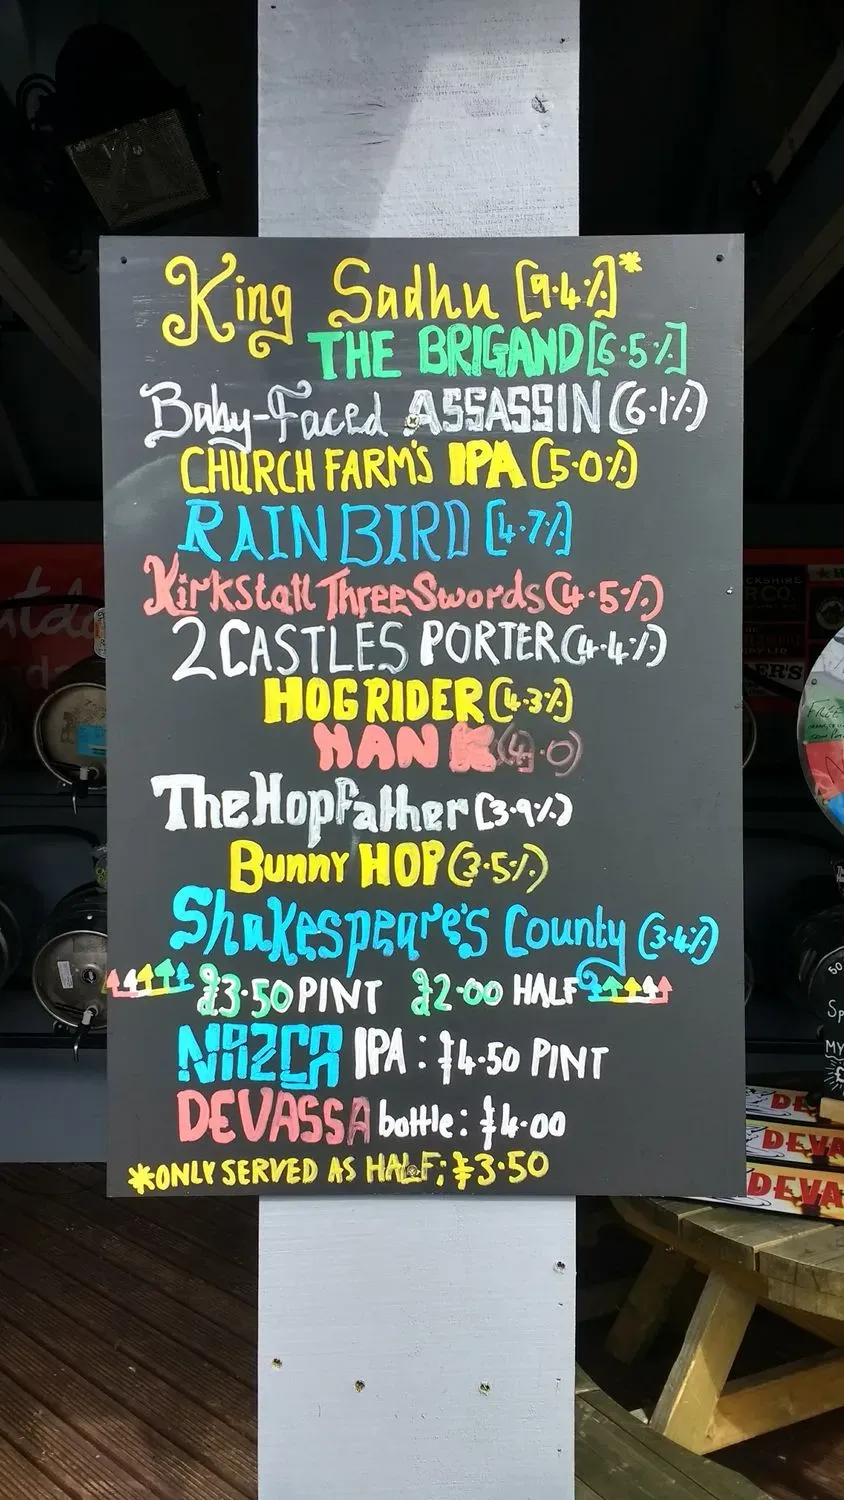 King Sadhu [9.4%]*
THE BRIGAND [6.5%]
Baby-Faced ASSASSIN (6.1%)
CHURCH FARM'S IPA (5.0%)
RAINBIRD [4.7%]
Kirkstall Three Swords (4.5%)
2 CASTLES PORTER (4.4%)
HOG RIDER (4.3%)
(4.0)
The Hopfather (3.9%)
Bunny HOP (3.5%)
Shakespeare's County (3.4%)
£3.50 PINT £2.00 HALF
NAZCA IPA: £4.50 PINT
DEVASSA bottle: £4.00
*ONLY SERVED AS HALF; £3.50
DE
DEVA
DEVA
FREE
50
Sp
MY
£